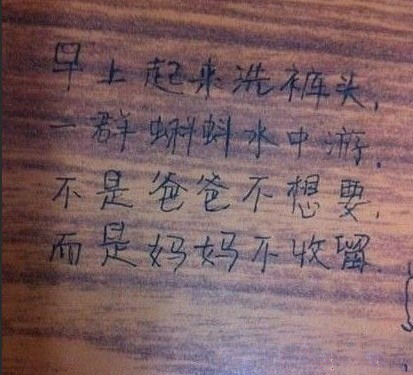 早上起来洗裤头,
一群蝌蚪水中游.
不是爸爸不想要,
而是妈妈不收留.